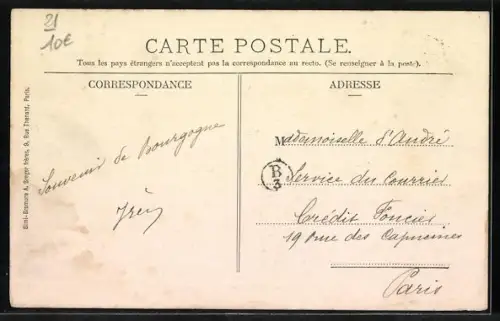 21
10€
CARTE POSTALE.
Tous les pays étrangers n'acceptent pas la correspondance au recto. (Se renseigner à la poste).
CORRESPONDANCE
ADRESSE
Souvenir de Bourgogne
Mademoiselle d'André
B/3
Service du Courrier
Crédit Foncier
19 rue des Capucines
Paris